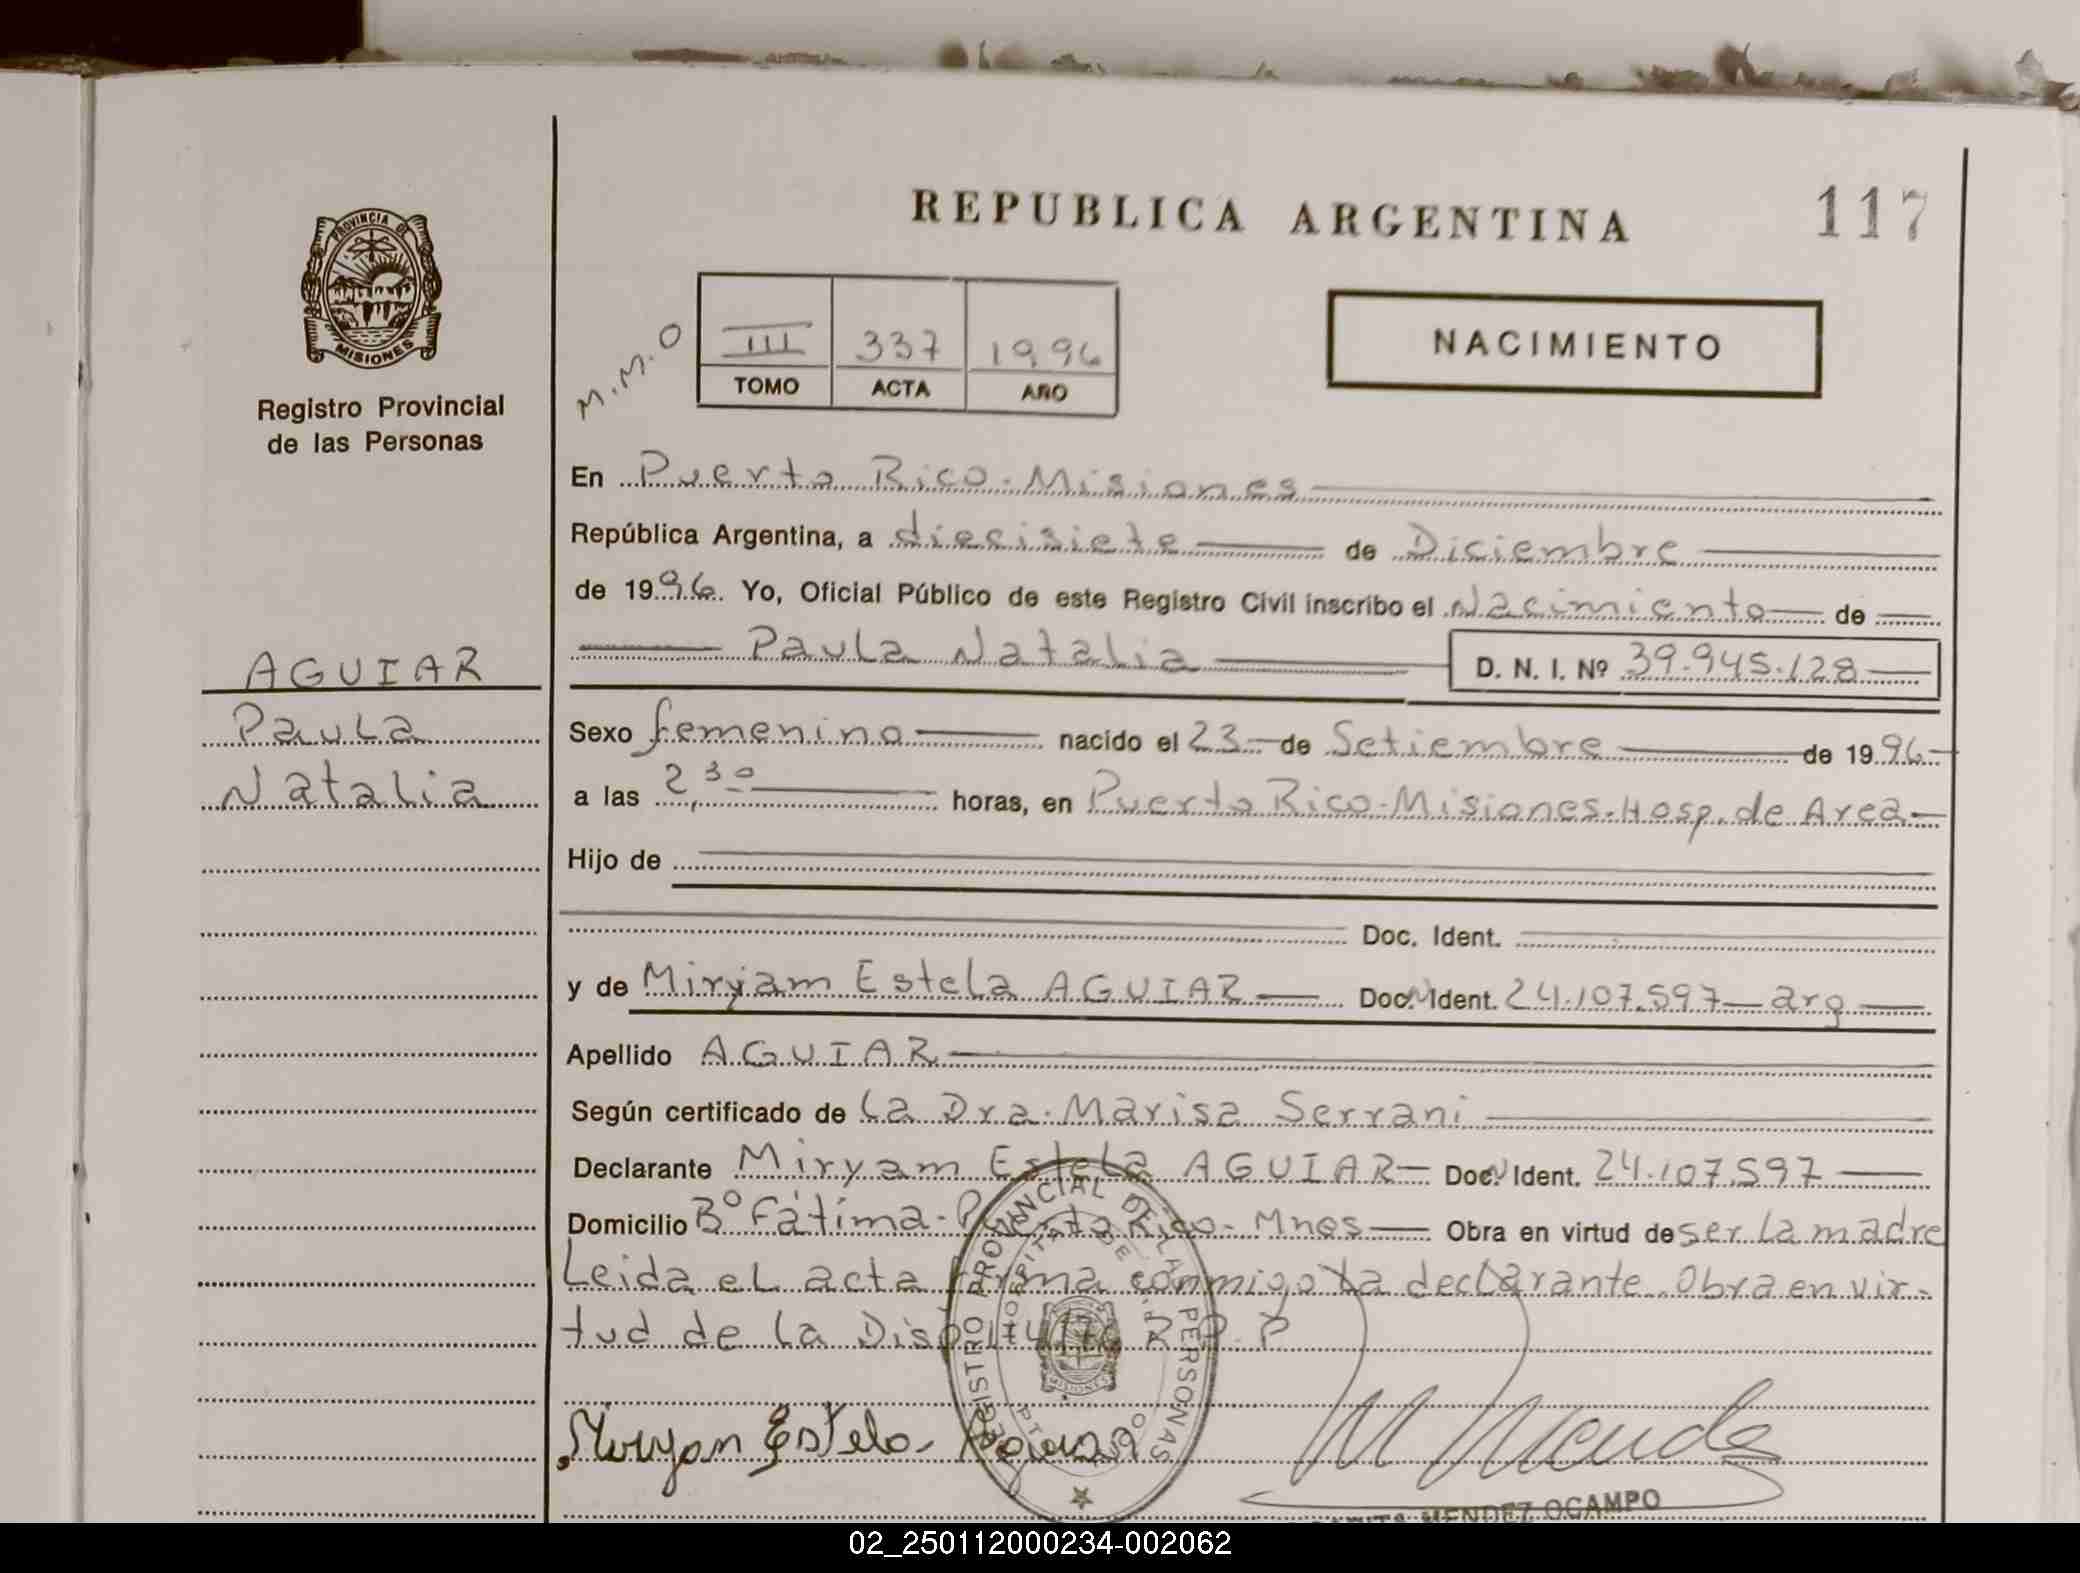 REPUBLICA ARGENTINA
117
PROVINCIA DE
MISIONES
Registro Provincial
de las Personas
M.M.O
III 337 1996
TOMO ACTA AÑO
NACIMIENTO
En Puerto Rico-Misiones
República Argentina, a diecisiete de Diciembre
de 1996. Yo, Oficial Público de este Registro Civil inscribo el Nacimiento de
Paula Natalia D. N. I. Nº 39.945.128
AGUIAR
Paula
Natalia
Sexo femenino nacido el 23 de Setiembre de 1996
a las 2,30 horas, en Puerto Rico-Misiones-Hosp. de Area
Hijo de
Doc. Ident.
y de Miryam Estela AGUIAR Doc. Ident. 24.107.597 arg
Apellido AGUIAR
Según certificado de la Dra. Marisa Serrani
Declarante Miryam Estela AGUIAR Doc. Ident. 24.107.597
Domicilio Bº Fátima-Puerto Rico-Mnes Obra en virtud de ser la madre
Leida el acta firma conmigo la declarante. Obra en vir-
tud de la Disp. R.P.P
REGISTRO PROVINCIAL DE LAS PERSONAS
HOSPITAL DE
MISIONES
Miryan Estela Aguiar
M Mendez
MENDEZ OCAMPO
02_250112000234-002062